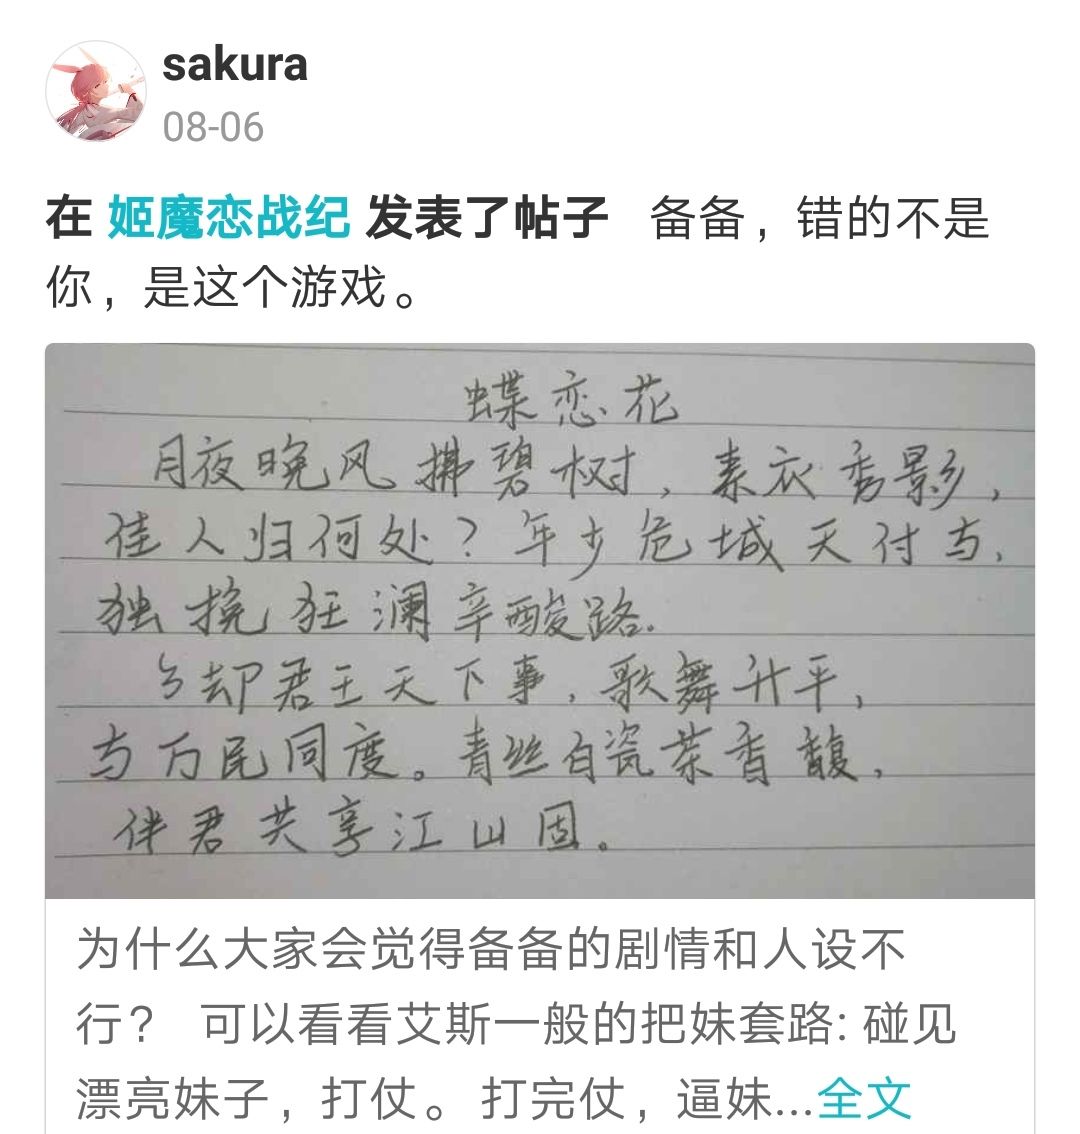 sakura
08-06
在 姬魔恋战纪 发表了帖子 备备，错的不是
你，是这个游戏。
蝶恋花
月夜晚风拂碧树，素衣秀影，
佳人归何处？年少危城天付与，
独挽狂澜辛酸路.
了却君王天下事，歌舞升平，
与万民同度。青丝白瓷茶香馥，
伴君共享江山固。
为什么大家会觉得备备的剧情和人设不
行？ 可以看看艾斯一般的把妹套路: 碰见
漂亮妹子，打仗。 打完仗，逼妹...全文